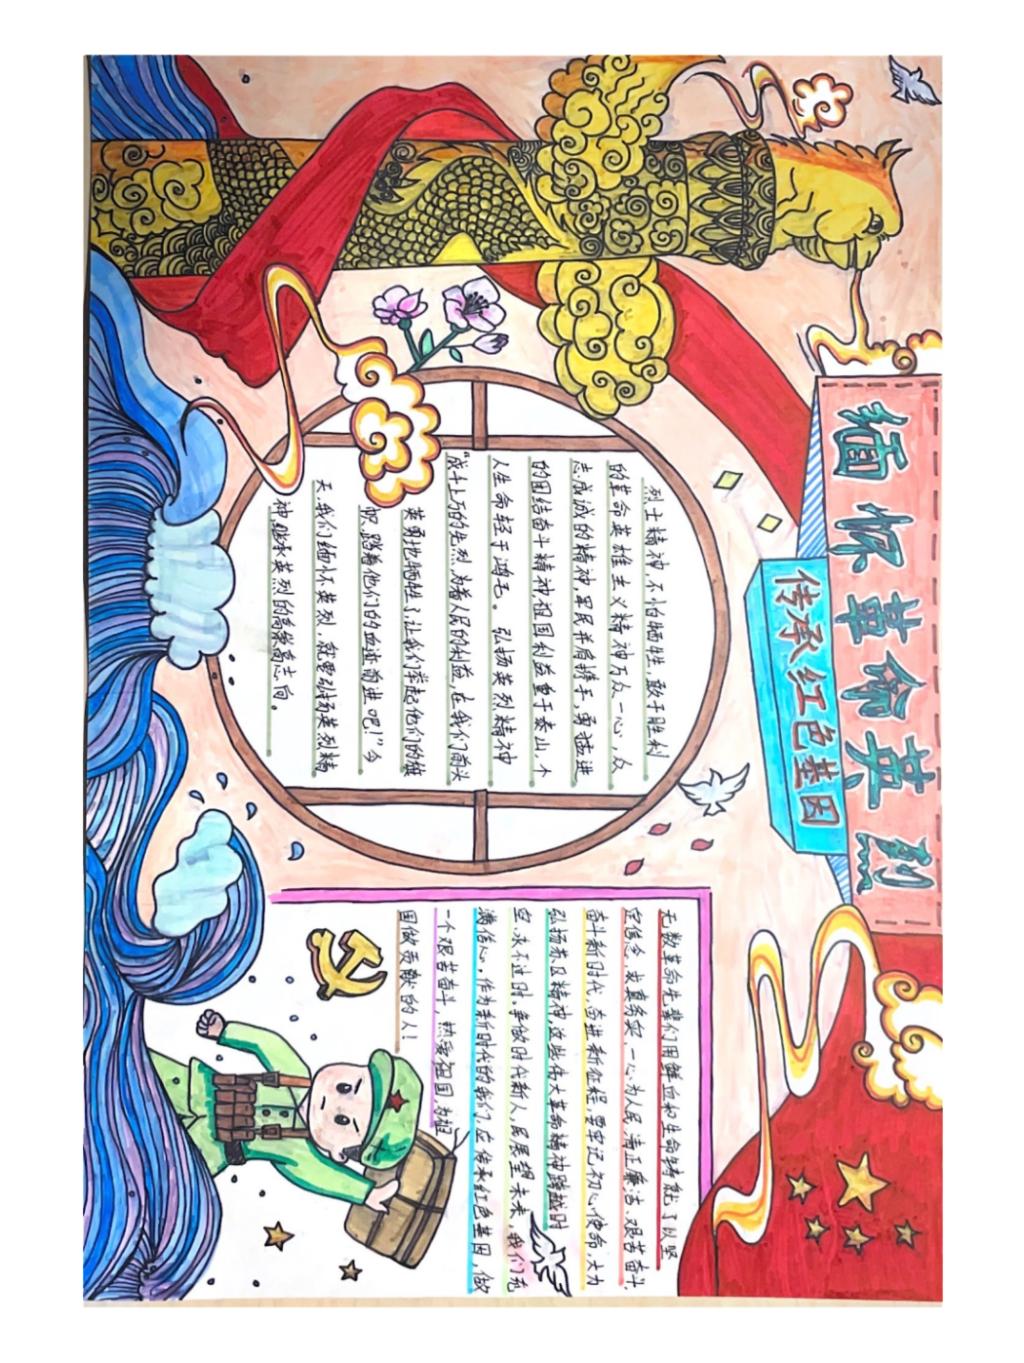 缅怀革命英烈
传承红色基因
烈士精神,不怕牺牲,敢于胜利
的革命英雄主义精神万众一心,众
志成诚的精神,军民并肩携手,勇猛进
的团结奋斗精神,祖国利益重于泰山,个
人生命轻于鸿毛。弘扬英烈精神
"成千上万的先烈,为着人民的利益,在我们前头
英勇地牺牲了,让我们举起他们的旗
帜,踏着他们的血迹前进吧!"今
天,我们缅怀英烈,就要弘扬英烈精
神,继承英烈的高崇高志向。
无数革命先辈们用鲜血和生命铸就了以坚
定信念,求真务实,一心为人民,清正廉洁、艰苦奋斗,
奋斗新时代,奋进新征程,要牢记初心使命,大力
弘扬苏区精神,这些伟大革命精神跨越时
空,永不过时,争做时代新人,展望未来,我们充
满信心。作为新时代的我们,应传承红色基因,做
一个艰苦奋斗,热爱祖国,为祖
国做贡献的人!